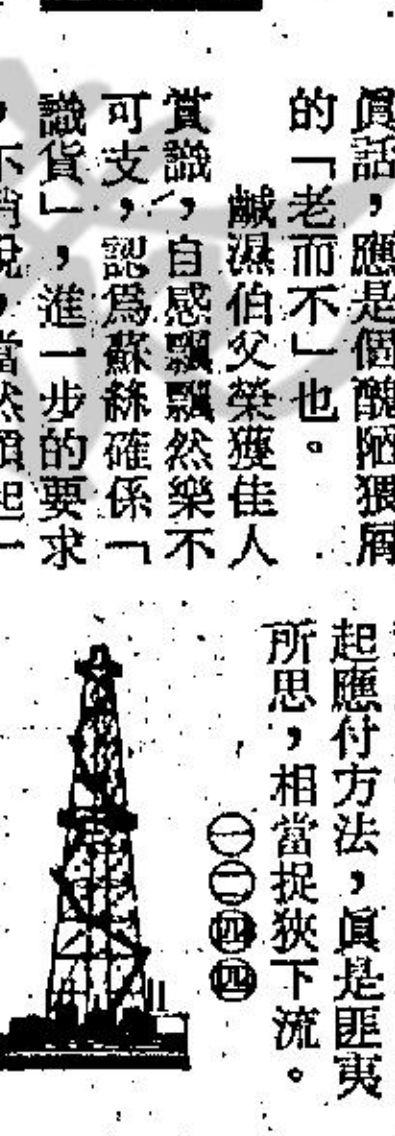 眞話，應是個醜陋猥屑
的「老而不」也。
鹹濕伯父榮獲佳人
賞識，自感飄飄然樂不
可支，認爲蘇絲確係「
識貨」，進一步的要求
，不消說，當然順起一
起應付方法，眞是匪夷
所思，相當捉狹下流。
㊀㊁㊃㊃